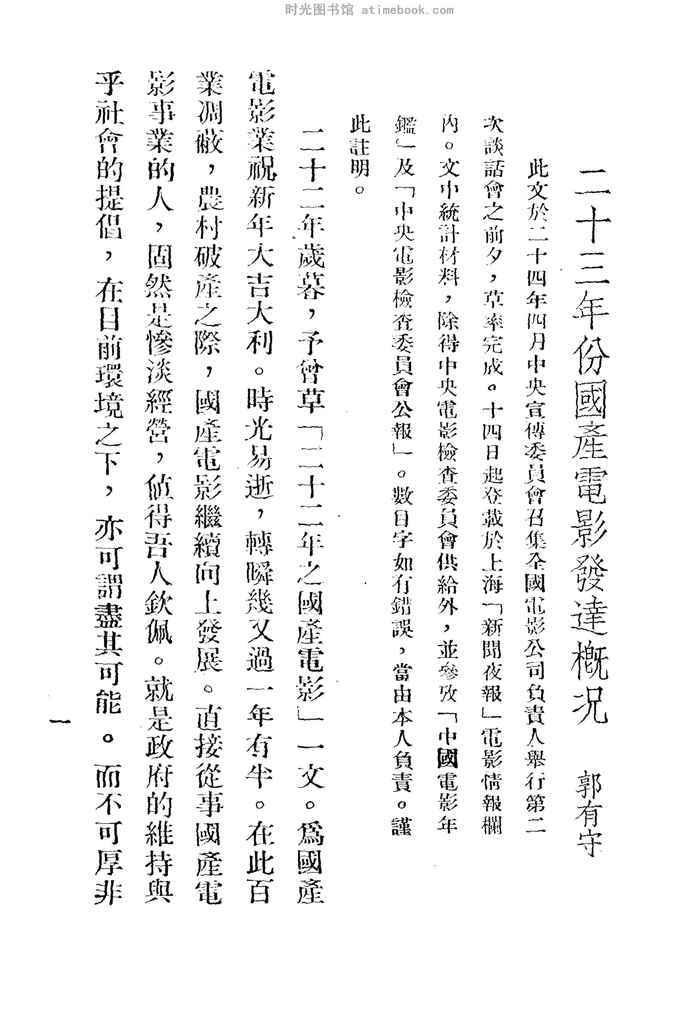 时光图书馆 atimebook.com
二十三年份國產電影發達概况 郭有守
此文於二十四年四月中央宣傳委員會召集全國電影公司負責人舉行第二
次談話會之前夕，草率完成。十四日起登載於上海「新聞夜報」電影情報欄
內。文中統計材料，除得中央電影檢查委員會供給外，並參攷「中國電影年
鑑」及「中央電影檢查委員會公報」。數目字如有錯誤，當由本人負責。謹
此註明。
二十二年歲暮，予曾草「二十二年之國產電影」一文。爲國產
電影業祝新年大吉大利。時光易逝，轉瞬幾又過一年有半。在此百
業凋敝，農村破產之際，國產電影繼續向上發展。直接從事國產電
影事業的人，固然是慘淡經營，値得吾人欽佩。就是政府的維持與
乎社會的提倡，在目前環境之下，亦可謂盡其可能。而不可厚非
一